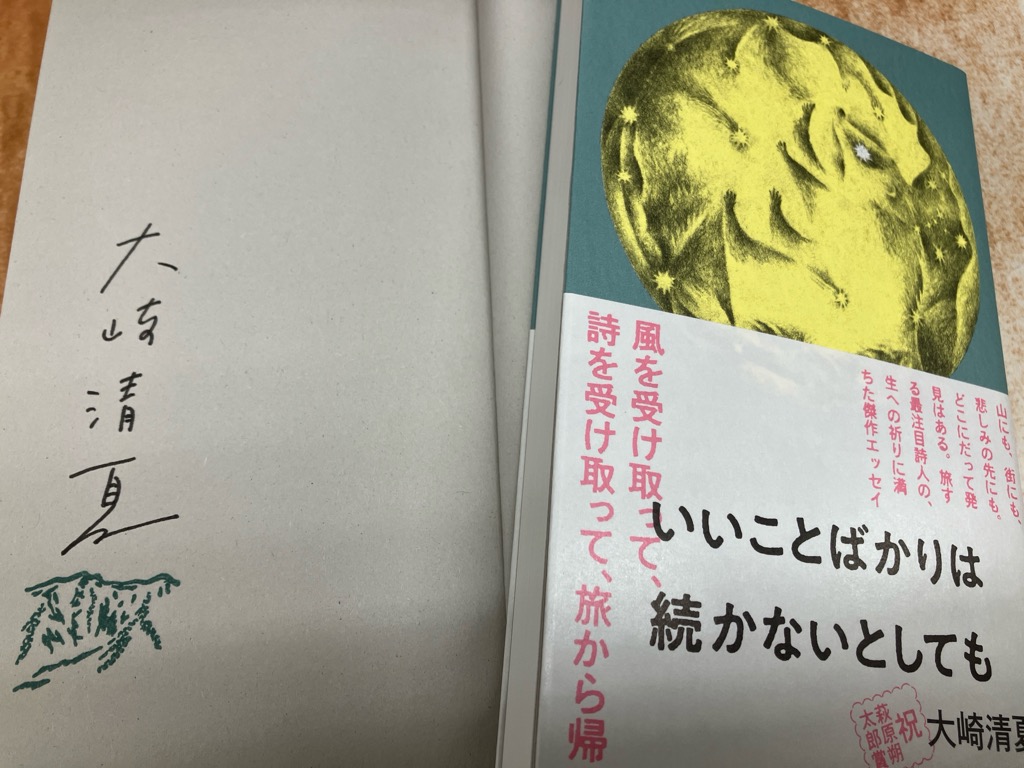 大崎清夏
風を受け取って、
詩を受け取って、旅から帰
山にも、街にも、
悲しみの先にも。
どこにだって発
見はある。旅す
る最注目詩人の、
生への祈りに満
ちた傑作エッセイ
いいことばかりは
続かないとしても
祝
萩原朔
太郎賞
大崎清夏